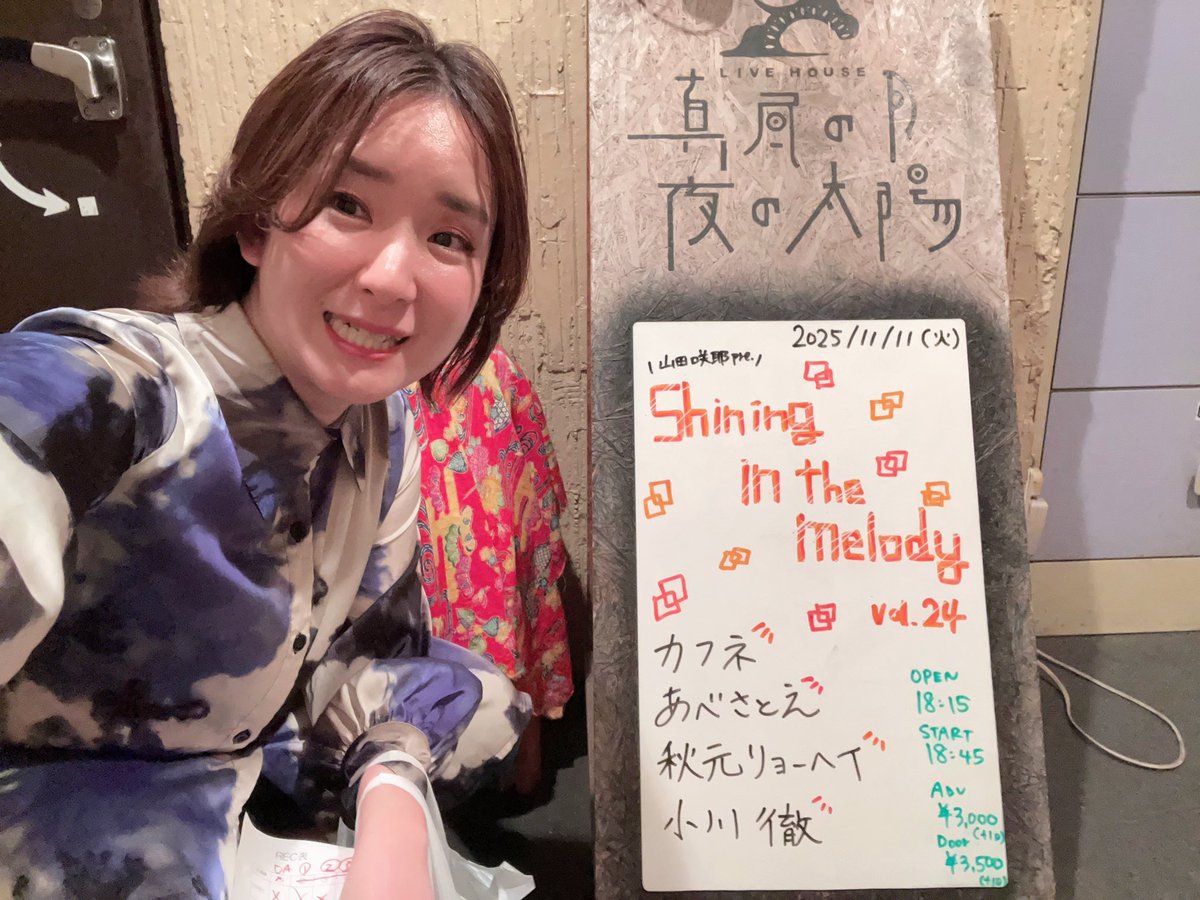 LIVE HOUSE
真昼の月
夜の太陽
2025/11/11(火)
\山田咲耶pre./
Shining
in the
melody
vol.24
カフネ
あべさとえ
秋元リョーヘイ
小川 徹
OPEN
18:15
START
18:45
ADV
¥3,000
(+1D)
Door
¥3,500
(+1D)
REC表
DA ① ②